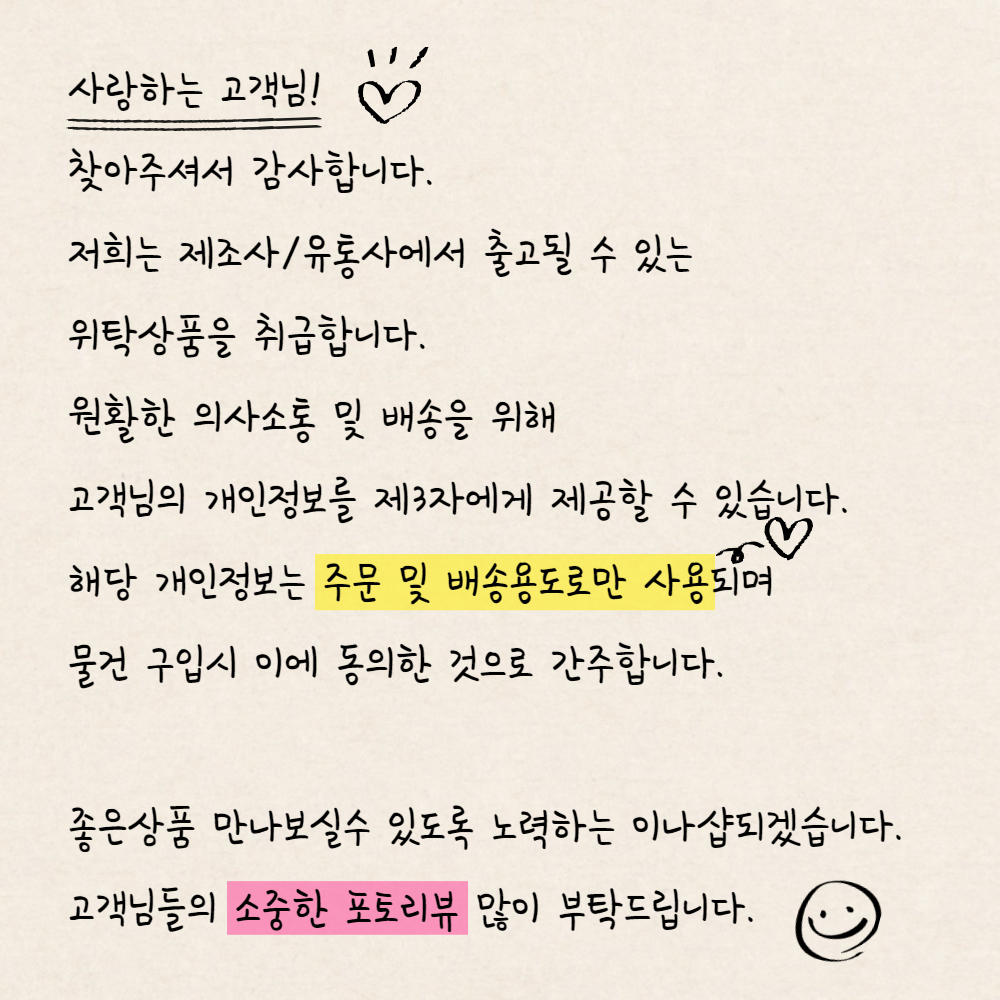 사랑하는 고객님!
찾아주셔서 감사합니다.
저희는 제조사/유통사에서 출고될 수 있는
위탁상품을 취급합니다.
원활한 의사소통 및 배송을 위해
고객님의 개인정보를 제3자에게 제공할 수 있습니다.
해당 개인정보는 주문 및 배송용도로만 사용되며
물건 구입시 이에 동의한 것으로 간주합니다.
좋은상품 만나보실수 있도록 노력하는 이나샵되겠습니다.
고객님들의 소중한 포토리뷰 많이 부탁드립니다.